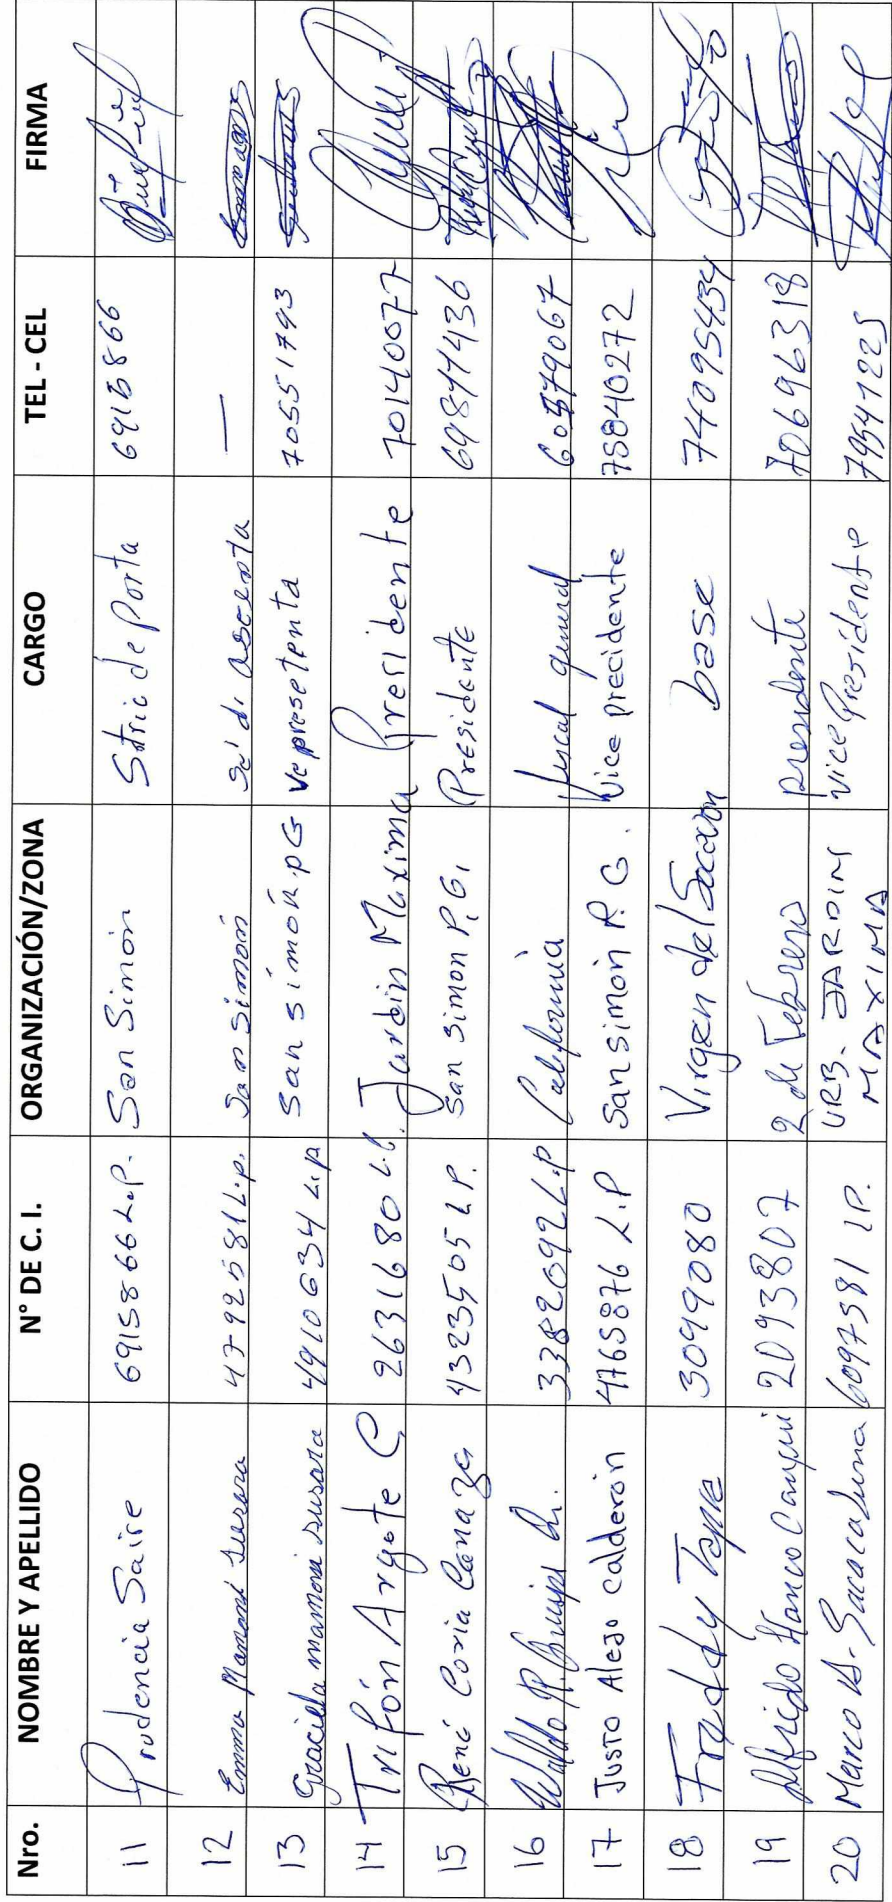 Nro. NOMBRE Y APELLIDO N° DE C. I. ORGANIZACIÓN/ZONA CARGO TEL - CEL FIRMA
11 Prudencia Saire 6915866 L.P. San Simón Stric de Porta 6915866
12 Emma Mamani Surara 4792581 L.p. San Simón de —
13 Graciela mamani surara 4910634 L.p San simón.pG Vepresetenta 70551793
14 Trifón Argote C 2631680 L.L. Jardin Maxima Presidente 70140577
15 René Coria Canaza 4323505 L.P. San Simon P.G. Presidente 69847436
16 Waldo R. 3382092 L.P California fiscal general 60579067
17 Justo Alejo calderón 4765876 L.P San simón P.G. Vice precidente 75840272
18 Freddy Tapia 3099080 Virgen del Socavon base 74095434
19 Alfredo Hanco Canqui 2093807 2 de Febrero presidente 70696318
20 Marco A. Sacacaluma 6097581 LP. URB. JARDIN MAXIMA vice Presidente 79541225